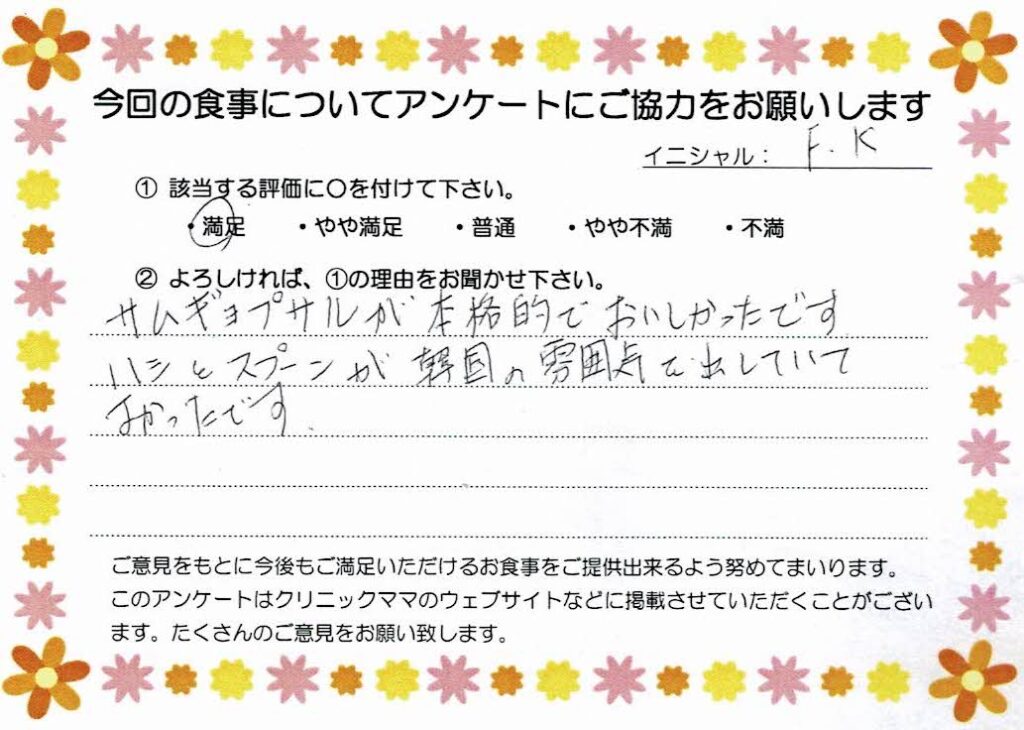 今回の食事についてアンケートにご協力をお願いします
イニシャル： F.K
① 該当する評価に〇を付けて下さい。
・満足 ・やや満足 ・普通 ・やや不満 ・不満
② よろしければ、①の理由をお聞かせ下さい。
サムギョプサルが本格的でおいしかったです
ハシとスプーンが韓国の雰囲気を出していて
よかったです.
ご意見をもとに今後もご満足いただけるお食事をご提供出来るよう努めてまいります。
このアンケートはクリニックママのウェブサイトなどに掲載させていただくことがござい
ます。たくさんのご意見をお願い致します。